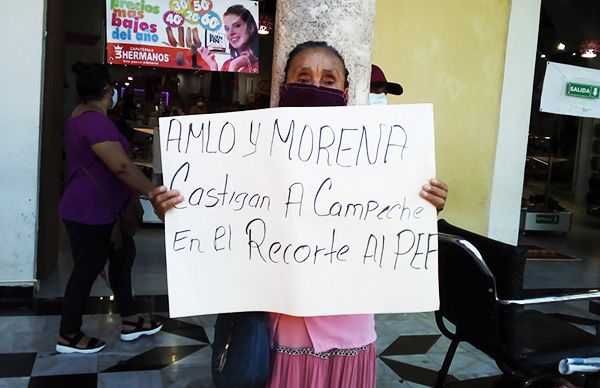 precios
más
bajos
del año
30%
50%
40%
20%
60%
3 HERMANOS
ZAPATERÍAS
SALIDA
SALIDA
AMLO Y MORENA
Castigan A Campeche
En El Recorte Al PEF